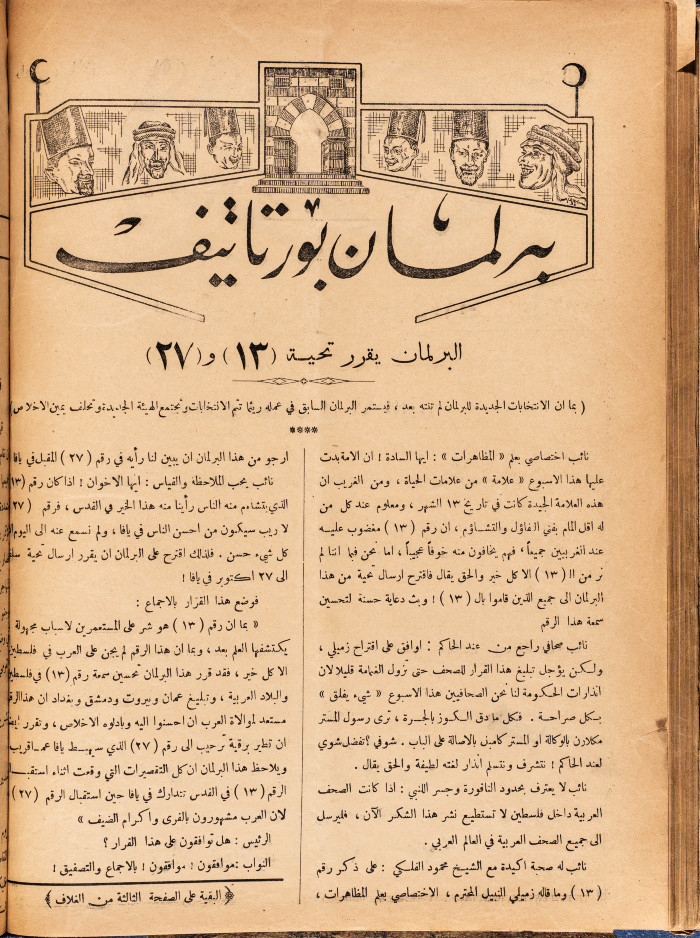 برلمان بورتاتيف
البرلمان يقرر تحية (١٣) و (٢٧)
( بما ان الانتخابات الجديدة للبرلمان لم تنته بعد ، فيستمر البرلمان السابق في عمله ريثما تتم الانتخابات وتجتمع الهيئة الجديدة وتحلف يمين الاخلاص)
****
نائب اختصاصي بعلم « المظاهرات » : ايها السادة ! ان الامة بدت
عليها هذا الاسبوع « علامة » من علامات الحياة ، ومن الغريب ان
هذه العلامة الجيدة كانت في تاريخ ١٣ الشهر ، ومعلوم عند كل من
له اقل المام بفني التفاؤل والتشاؤم ، ان رقم ( ١٣ ) مغضوب عليه
عند الغربيين جميعاً ، فهم يخافون منه خوفاً عجيباً ، اما نحن فما اننا لم
نر من ال ( ١٣ ) الا كل خير والحق يقال فاقترح ارسال تحية من هذا
البرلمان الى جميع الذين قاموا بال ( ١٣ ) ! وبث دعاية حسنة لتحسين
سمعة هذا الرقم
نائب صحافي راجع من عند الحاكم : اوافق على اقتراح زميلي ،
ولكن يؤجل تبليغ هذا القرار للصحف حتى تزول الغمامة قليلا لان
انذارات الحكومة لنا نحن الصحافيين هذا الاسبوع « شيء يفلق »
بكل صراحة . فكل ما دق الكوز بالجرة ، نرى رسول المستر
مكلارن بالوكالة او المستر كامبل بالاصالة على الباب . شوفي ؟ تفضل شوي
لعند الحاكم ! نتشرف ونتسلم انذار لغته لطيفة والحق يقال .
نائب لا يعترف بحدود الناقورة وجسر اللنبي : اذا كانت الصحف
العربية داخل فلسطين لا تستطيع نشر هذا الشكر الآن ، فليرسل
الى جميع الصحف العربية في العالم العربي .
نائب له صحبة اكيدة مع الشيخ محمود الفلكي : على ذكر رقم
( ١٣ ) وما قاله زميلي النبيل المحترم ، الاختصاصي بعلم المظاهرات ،
ارجو من هذا البرلمان ان يبين لنا رأيه في رقم ( ٢٧ ) المقبل في يافا
نائب يحب الملاحظة والقياس : ايها الاخوان ! اذا كان رقم (١٣
الذي يتشاءم منه الناس رأينا منه هذا الخير في القدس ، فرقم ( ٢٧
لا ريب سيكون من احسن الناس في يافا ، ولم نسمع عنه الى اليوم الا
كل شيء حسن . فلذلك اقترح على البرلمان ان يقرر ارسال تحية سلفاً
الى ٢٧ اكتوبر في يافا !
فوضع هذا القرار بالاجماع :
« بما ان رقم ( ١٣ ) هو شر على المستعمرين لاسباب مجهولة
يكتشفها العلم بعد ، وبما ان هذا الرقم لم يجن على العرب في فلسطين
الا كل خير ، فقد قرر هذا البرلمان تحسين سمعة رقم (١٣) في فلسطين
والبلاد العربية ، وتبليغ عمان وبيروت ودمشق وبغداد ان هذا الرقم
مستعد لموالاة العرب ان احسنوا اليه وبادلوه الاخلاص ، ونقرر ايضاً
ان تطير برقية ترحيب الى رقم (٢٧) الذي سيهبط يافا عما قريب
ويلاحظ هذا البرلمان ان كل التقصيرات التي وقعت اثناء استقبال
الرقم ( ١٣ ) في القدس تتدارك في يافا حين استقبال الرقم ( ٢٧ )
لان العرب مشهورون بالقرى واكرام الضيف »
الرئيس : هل توافقون على هذا القرار ؟
النواب : موافقون ! موافقون ! بالاجماع والتصفيق !
﴿ البقية على الصفحة الثالثة من الغلاف ﴾